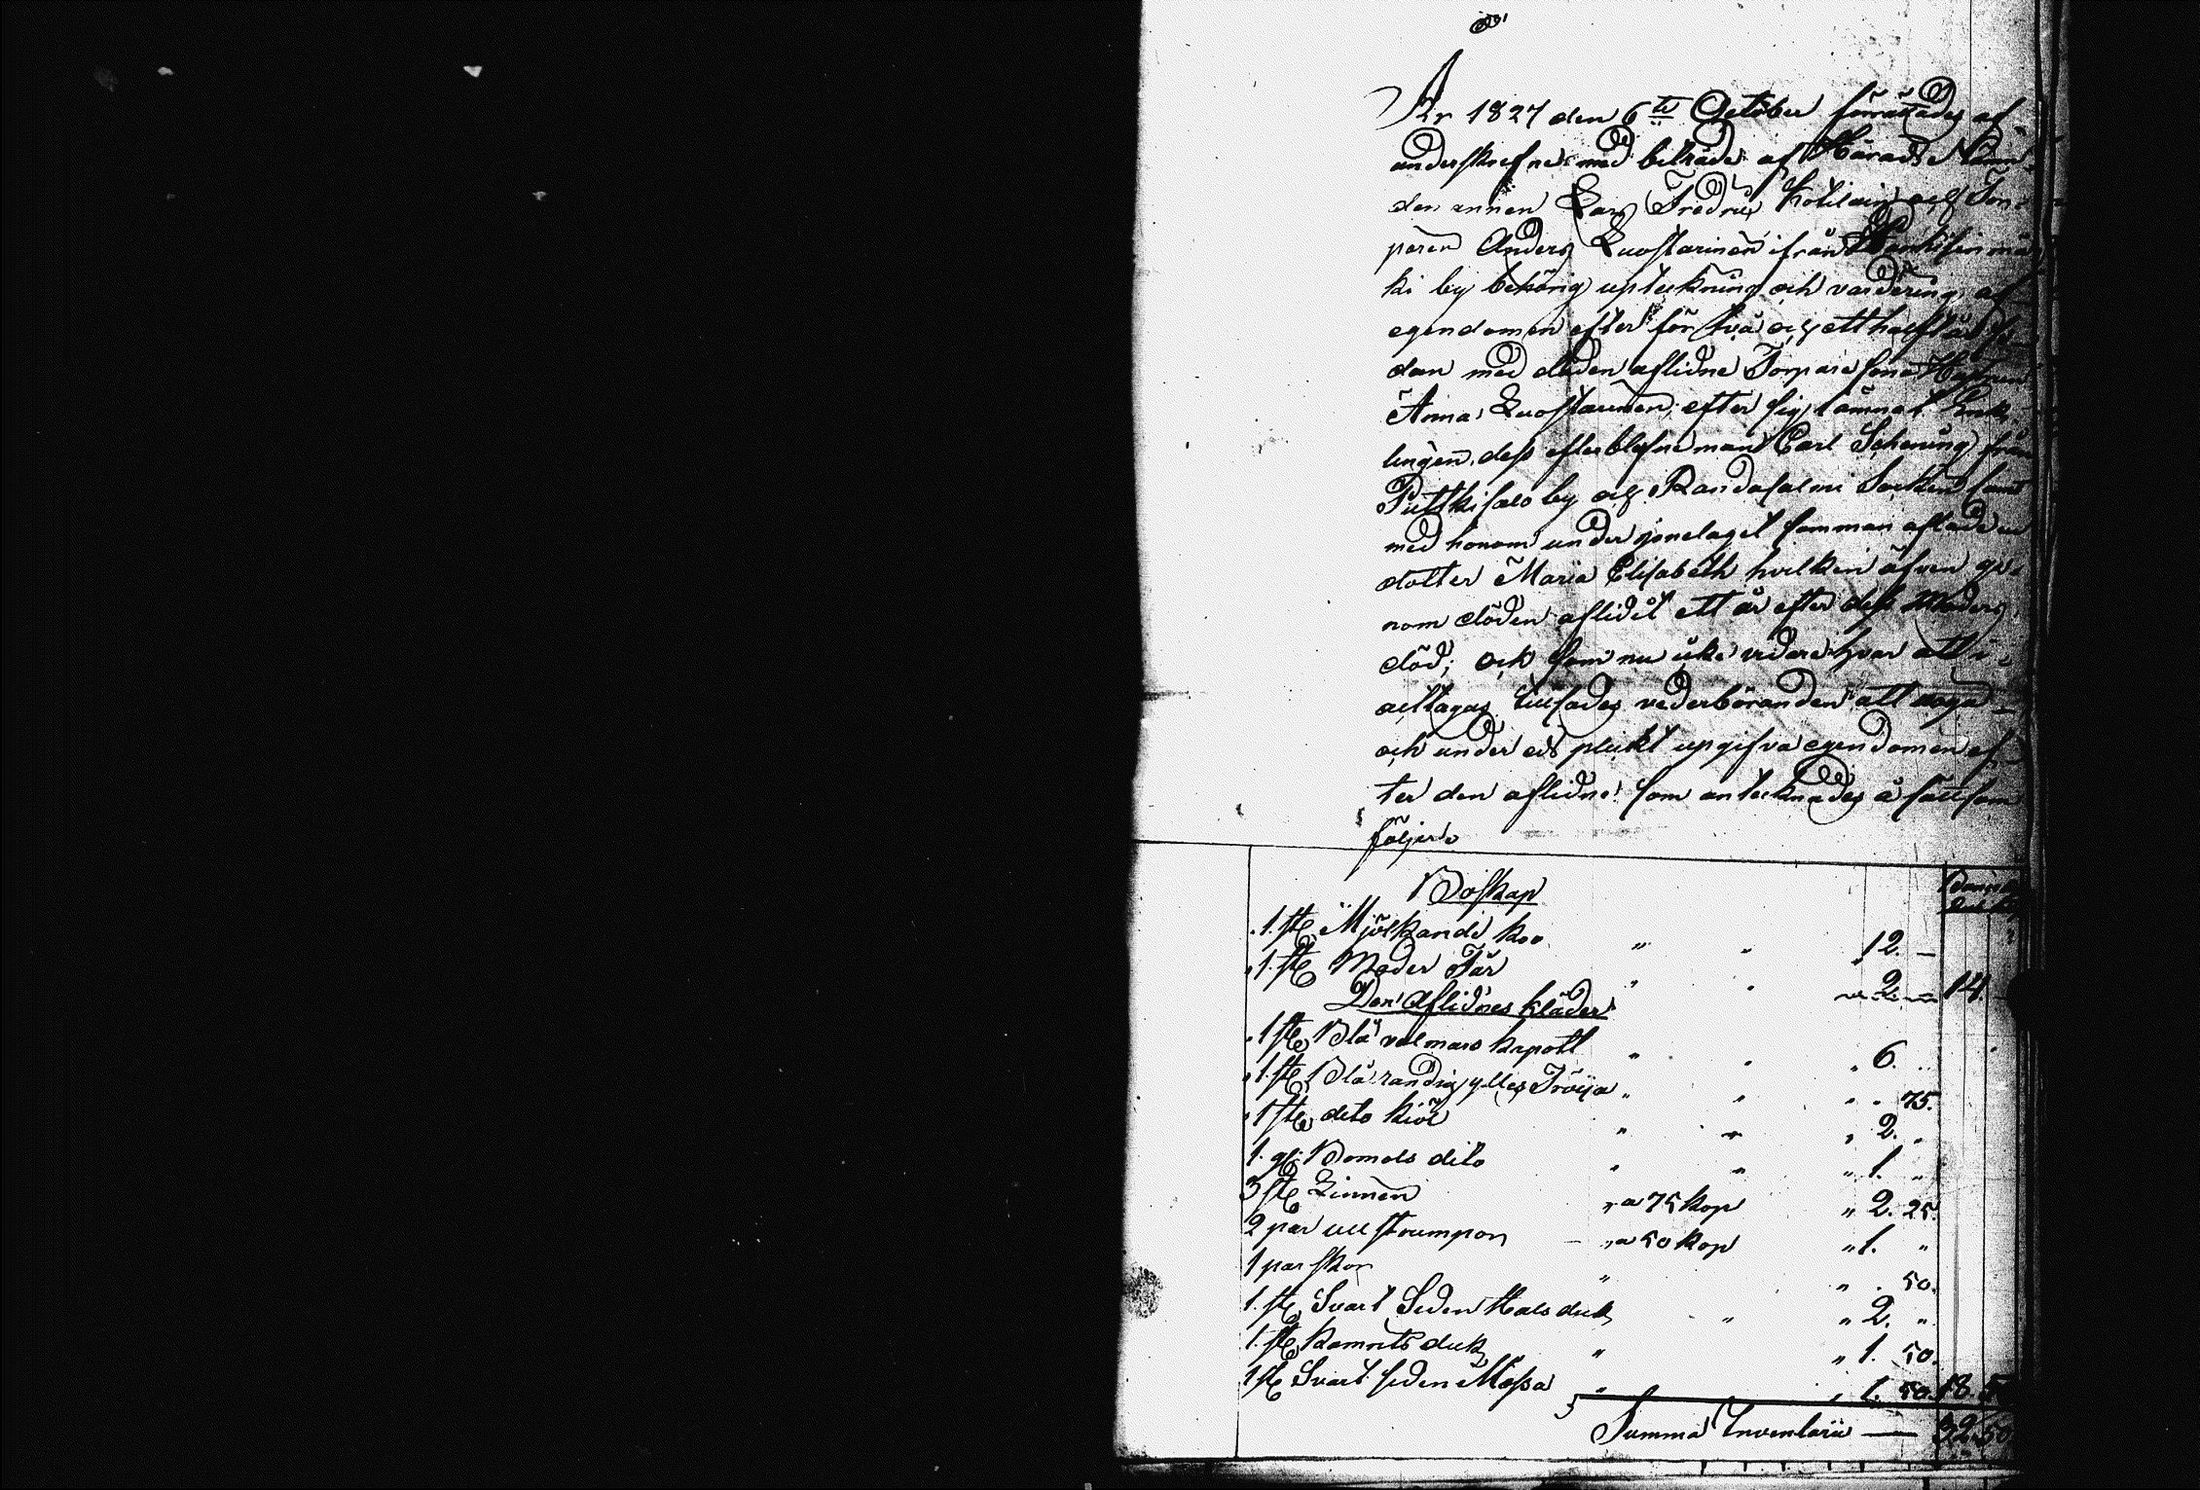 År 1827 den 6te October förrättades af
underskrefne med biträde af Härads
den annen Lars Fredric Kotilain och Tor-
paren Anders Luostarinen ifrån
ki by behörig upteckning och värdering af
egendomen efter för två och ett halft år se-
dan med döden aflidne Torpare
Anna Luostarinen, efter sig lämnat Enk-
lingen, dess efterblefne man Carl Schening från
Putkisalo by och Randasalmi Sochen samt
med honom under gonelaget samman aflade en
dotter Maria Elisabeth hvilken äfven ge-
nom döden aflidit ett år efter dess Moders
död; och som nu icke vidare var att i-
acttagas tillsades vederböranden att noga
och under eds plickt upgifva egendomen ef-
ter den aflidne som antecknades å sätt som
följer.
Boskap
1. st. Mjölkande ko " " 12. —
1. st. Moder Får " " 2. — 14. —
Den Aflidnes kläder
1 st. Blå valmars kapott " " 6. "
1. st. Blå randig ylles Tröija " " " 75.
1 st. dito kiol " " " 2. "
1. gl. Bomols dito " " " 1. "
3 st. Linnen " a 75 kop " 2. 25.
2 par ull strumpor — " a 50 kop " 1. "
1 par skor " " . 50.
1. st. Svart Siden Halsduk " " 2. "
1. st. Kamrits duk " " 1. 50.
1 st. Svart siden Mössa " " 1. 50. 18. 50
Summa Inventarii — 32. 50